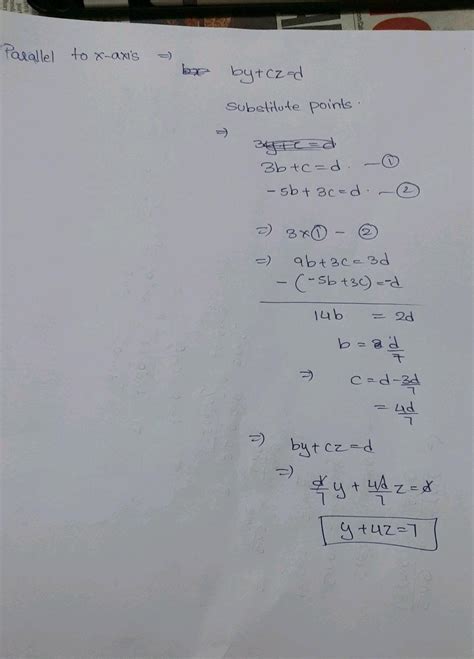 Parallel to x-axis ⇒ by+cz=d
substitute points.
⇒
3y+c=d
3b+c=d. —①
-5b+3c=d. —②
⇒ 3x① - ②
⇒ 9b+3c=3d
-(-5b+3c)=-d
14b = 2d
b = d/7
⇒ c=d-3d/7
= 4d/7
⇒ by+cz=d
⇒ d/7 y + 4d/7 z = d
y+4z=7